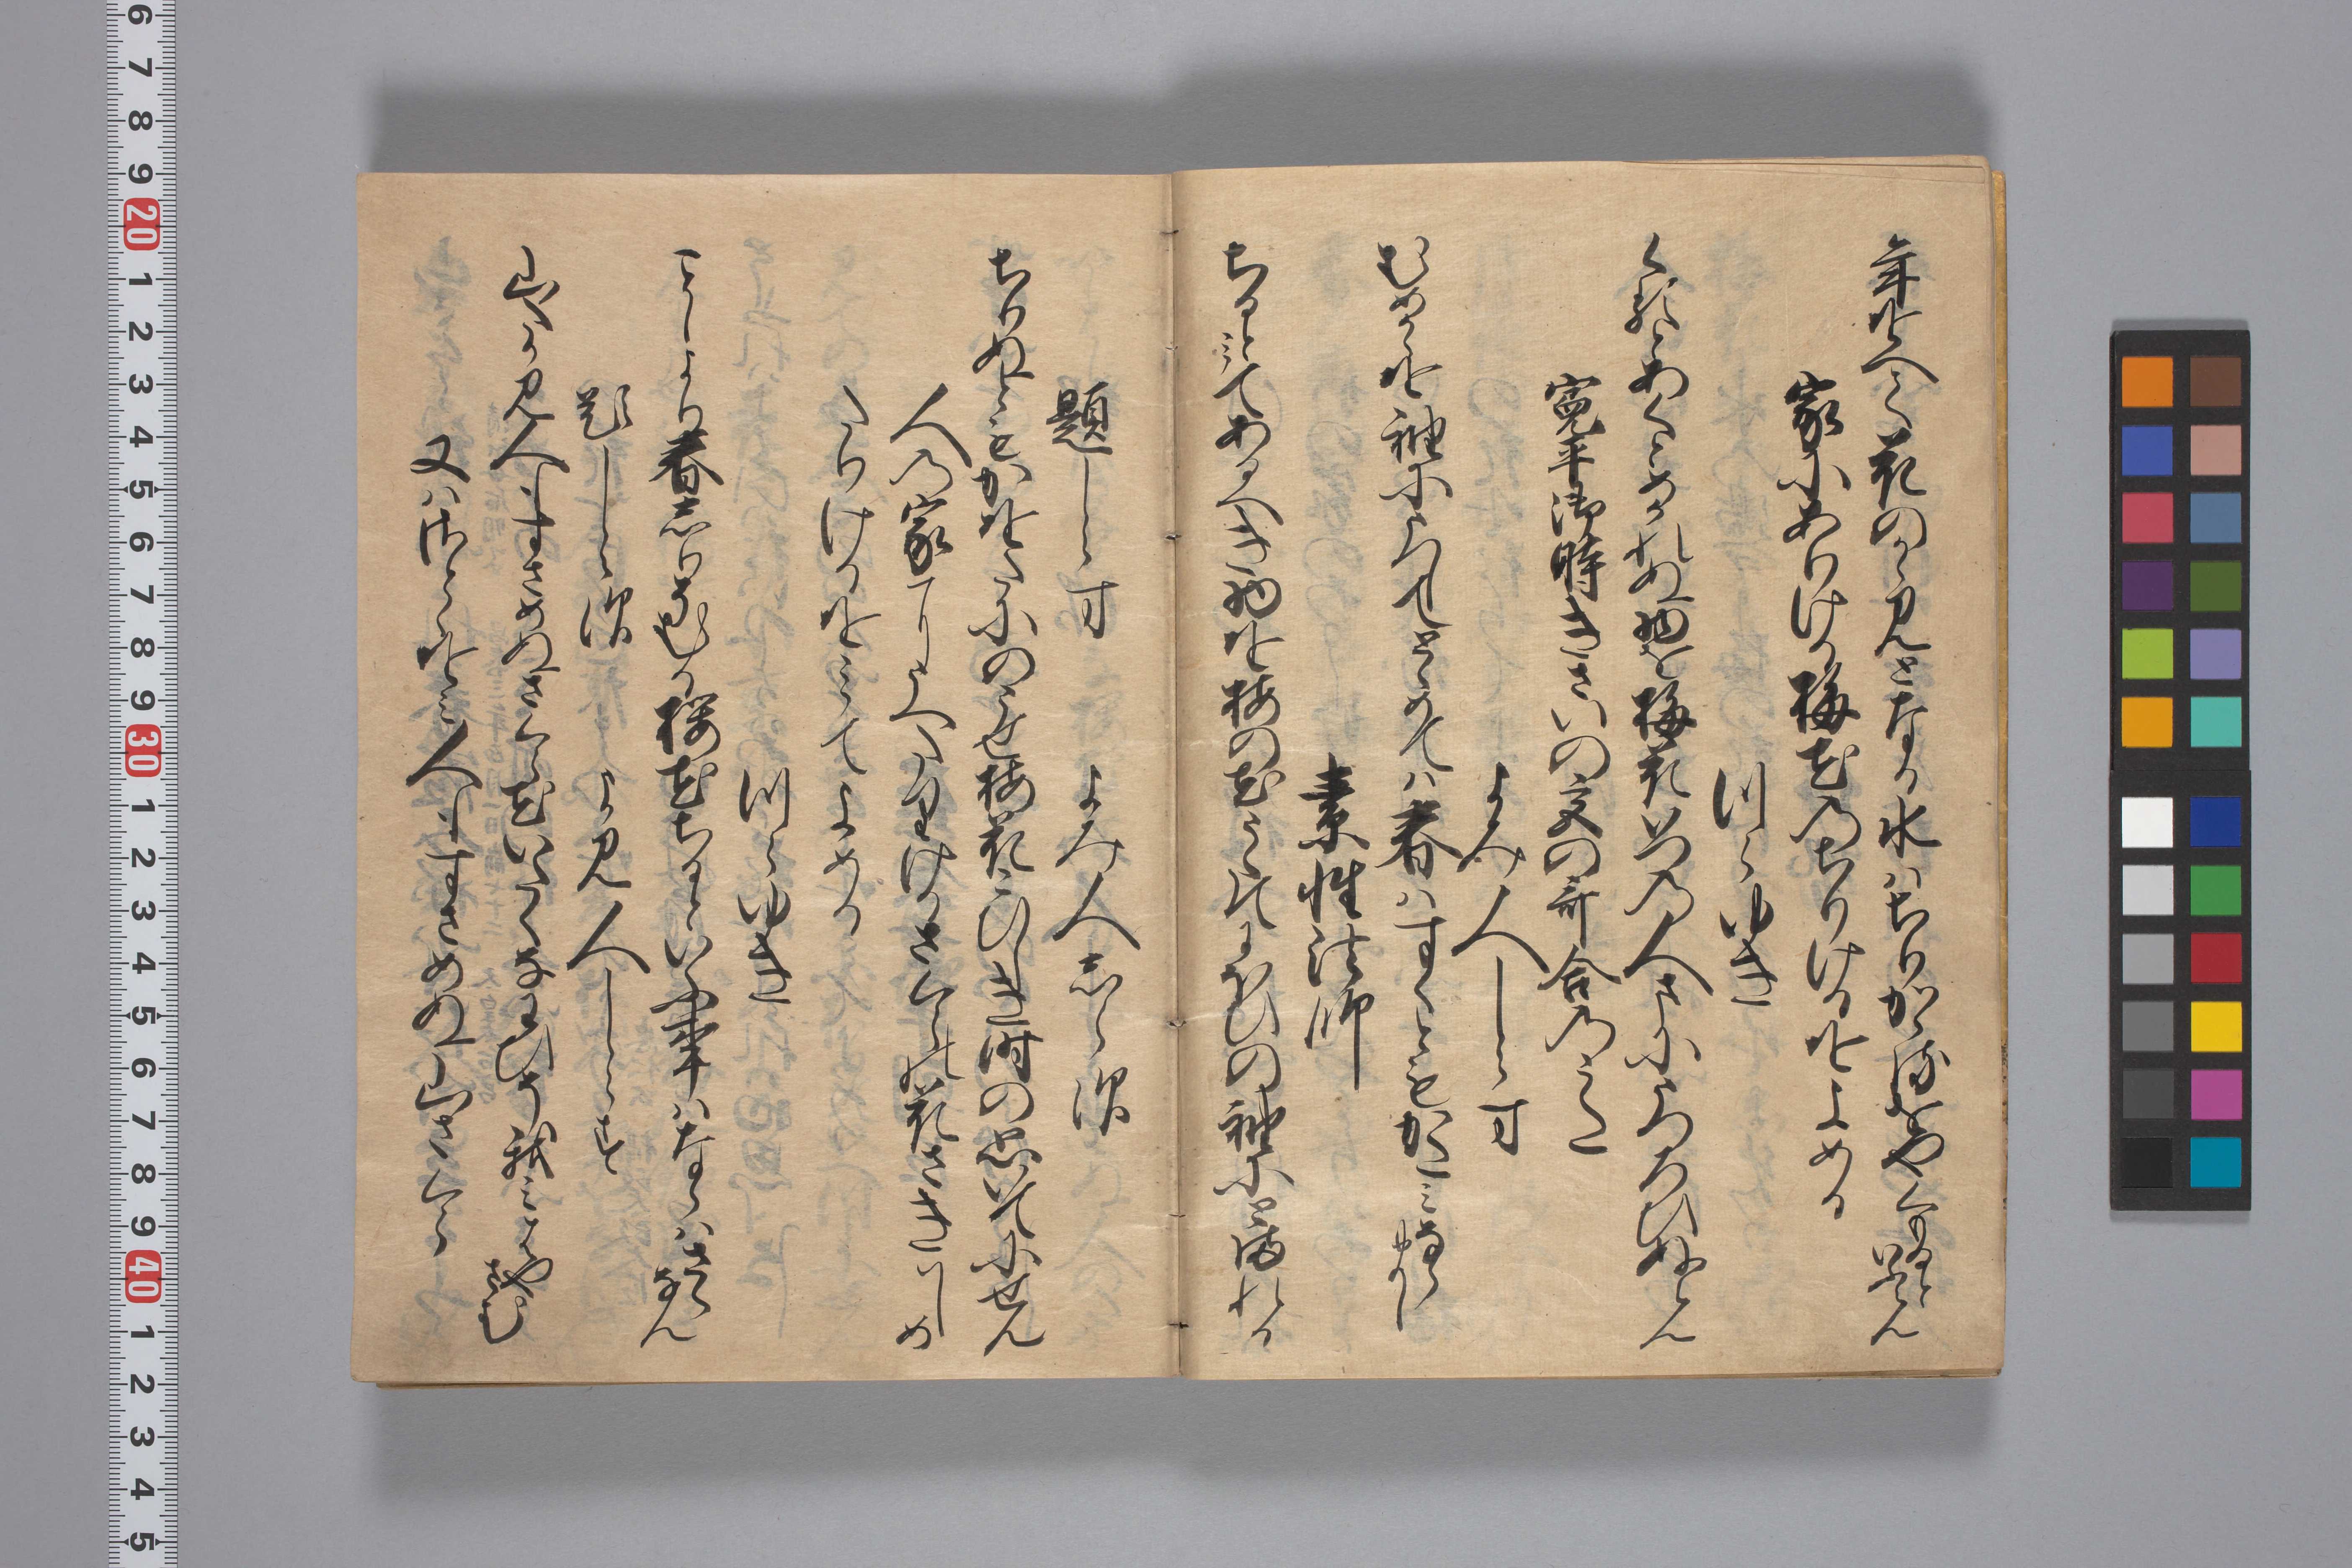 年をへて花のかゝ見となる水はちりかゝるをやくもるといふらん
家にありける梅花のちりけるをよめる
つらゆき
くるとあくとめかれぬ物を梅花いつの人まにうつろひぬらん
寛平御時きさいの宮の哥合のうた
よみ人しらす
むめかゝを袖にうつしてとゝめては春はすくともかたみならまし
素性法師
ちるとみてあるへき物を梅の花うたてにほひの袖にとまれる
題しらす　よみ人しらす
ちりぬともかをたにのこせ梅花こひしき時の思いてにせん
人の家にうへたりけるさくらの花さきはしめ
たりけるをみてよめる
つらゆき
ことしより春しりそむる桜花ちるといふ事はならはさらなん
題しらす　よみ人しらす
山たかみ人もすさめぬさくら花いたくなわひそ我みはやさむ
又は里とをみ人もすさめぬ山さくら